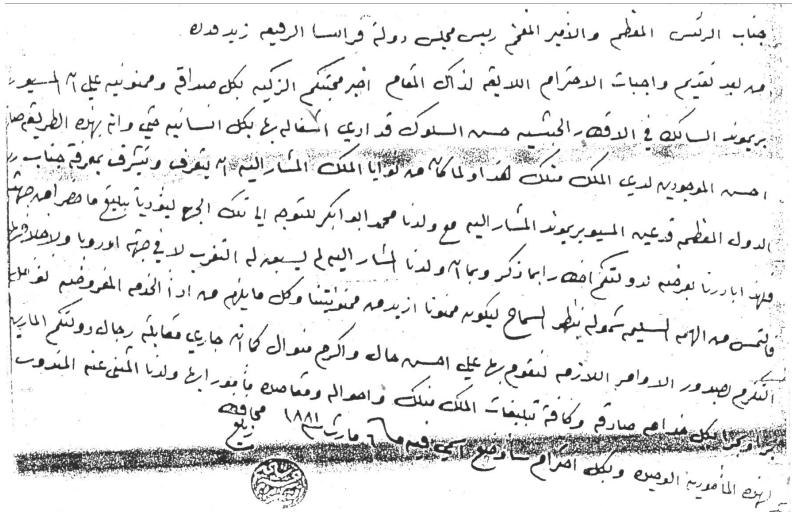 جناب الرئيس المعظم والأمير المفخم رييس مجلس دولة فرانسا الرفيعه زيد قدره
من بعد تقديم واجبات الاحترام اللايقه لذاك المقام اخبر محبتكم الزكيه بكل صداقه وممنونيه علي ان المسيو
بريموند السالك في الاقطار الحبشيه حسن السلوك قد ادي اشغاله بها بكل انسانيه حتي وانه بهذه الطريقه
احسن الموجودين لدي الملك منلك هذا ولما كان من نوايا الملك المشار اليه ان يتعرف ويتشرف بمعرفة جناب
الدول المعظمه قد عين المسيو بريموند المشار اليه مع ولدنا محمد ابو ابكر للتوجه الي تلك الجهه ليؤديا تبليغ ما
فلهذا بادرنا بعرضه لدولتكم اخطارا بما ذكر وبما ان ولدنا المشار اليه لم يسبق له التغرب لا في جهة اوروبا ولا خلافها
فالتمس من الهمه السليمه شموله بنظر السماح ليكون ممنونا ازيد من ممنونيتنا وكل ما يلزم من اداء الخدمه المفروضه
التكرم بصدور الاوامر اللازمه لنقوم بها علي احسن حال واكرم منوال كما ان جاري مقابلة رجال دولتكم
بكل صادقه وكافة تبليغات الملك منلك واحواله ومقاصده مأمور بها ولدنا المثني عنه المندوب
لهذه المأموريه الوحيده وبكل احترام سأوضع اسمي فيه ٦ مارث سنة ١٨٨١ محافظ
زيلع